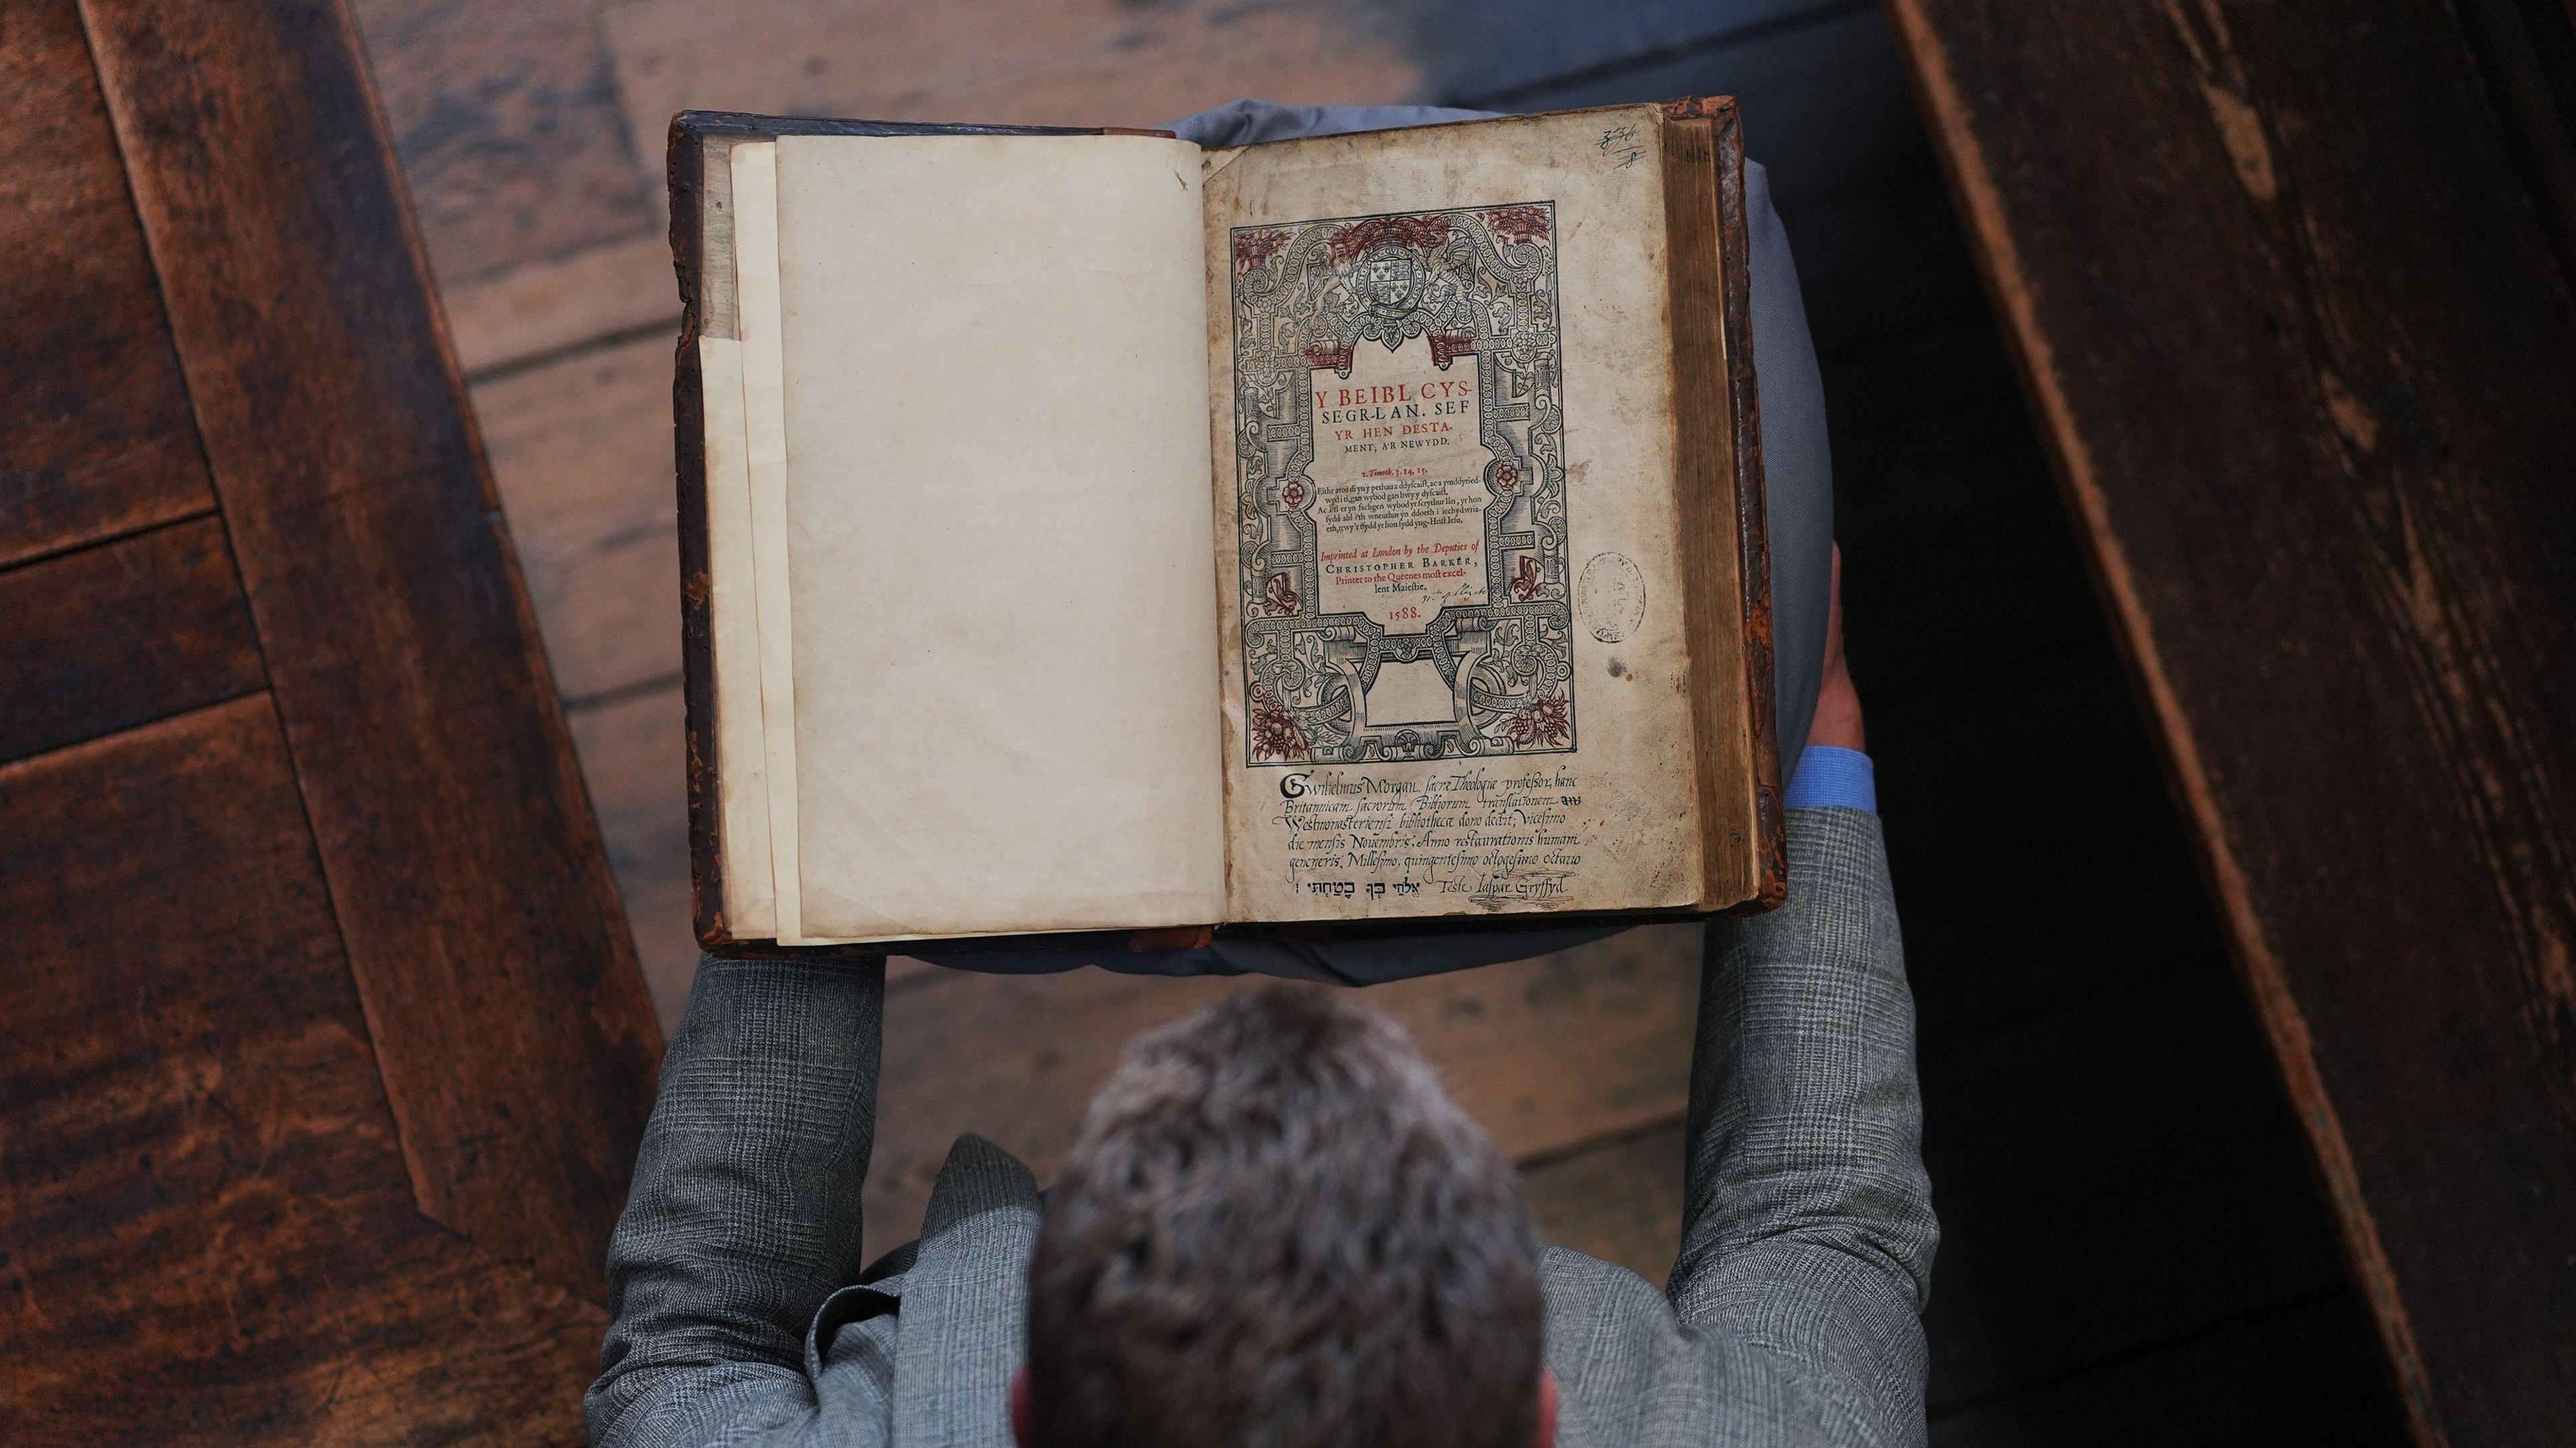 Y BEIBL CYS-
SEGR-LAN. SEF
YR HEN DESTA-
MENT, A'R NEWYDD.
2. Timoth. 3. 14, 15.
Eithr aros di yn y pethau a ddyſcaiſt, ac a ymddyried-
wyd i ti, gan wybod gan bwy y dyſcaiſt.
Ac i ti er yn fachgen wybod yr ſcrythur lân, yr hon
ſydd abl i'th wneuthur yn ddoeth i iechydwria-
eth, trwy'r ffydd yr hon ſydd yng-Hriſt Ieſu.
Imprinted at London by the Deputies of
CHRISTOPHER BARKER,
Printer to the Queenes moſt excel-
lent Maieſtie.
1588.
Gwilhelmus Morgan sacre Theologiæ profeſſor, hanc
Britannicam sacrorum Bibliorum translationem
Westmonasteriensi bibliothecæ dono dedit, Vicesimo
die mensis Nouembris. Anno restaurationis humani
generis, Millesimo, quingentesimo octogesimo octauo
אלהי בך בטחתי Teste Iaspar Gryffyd